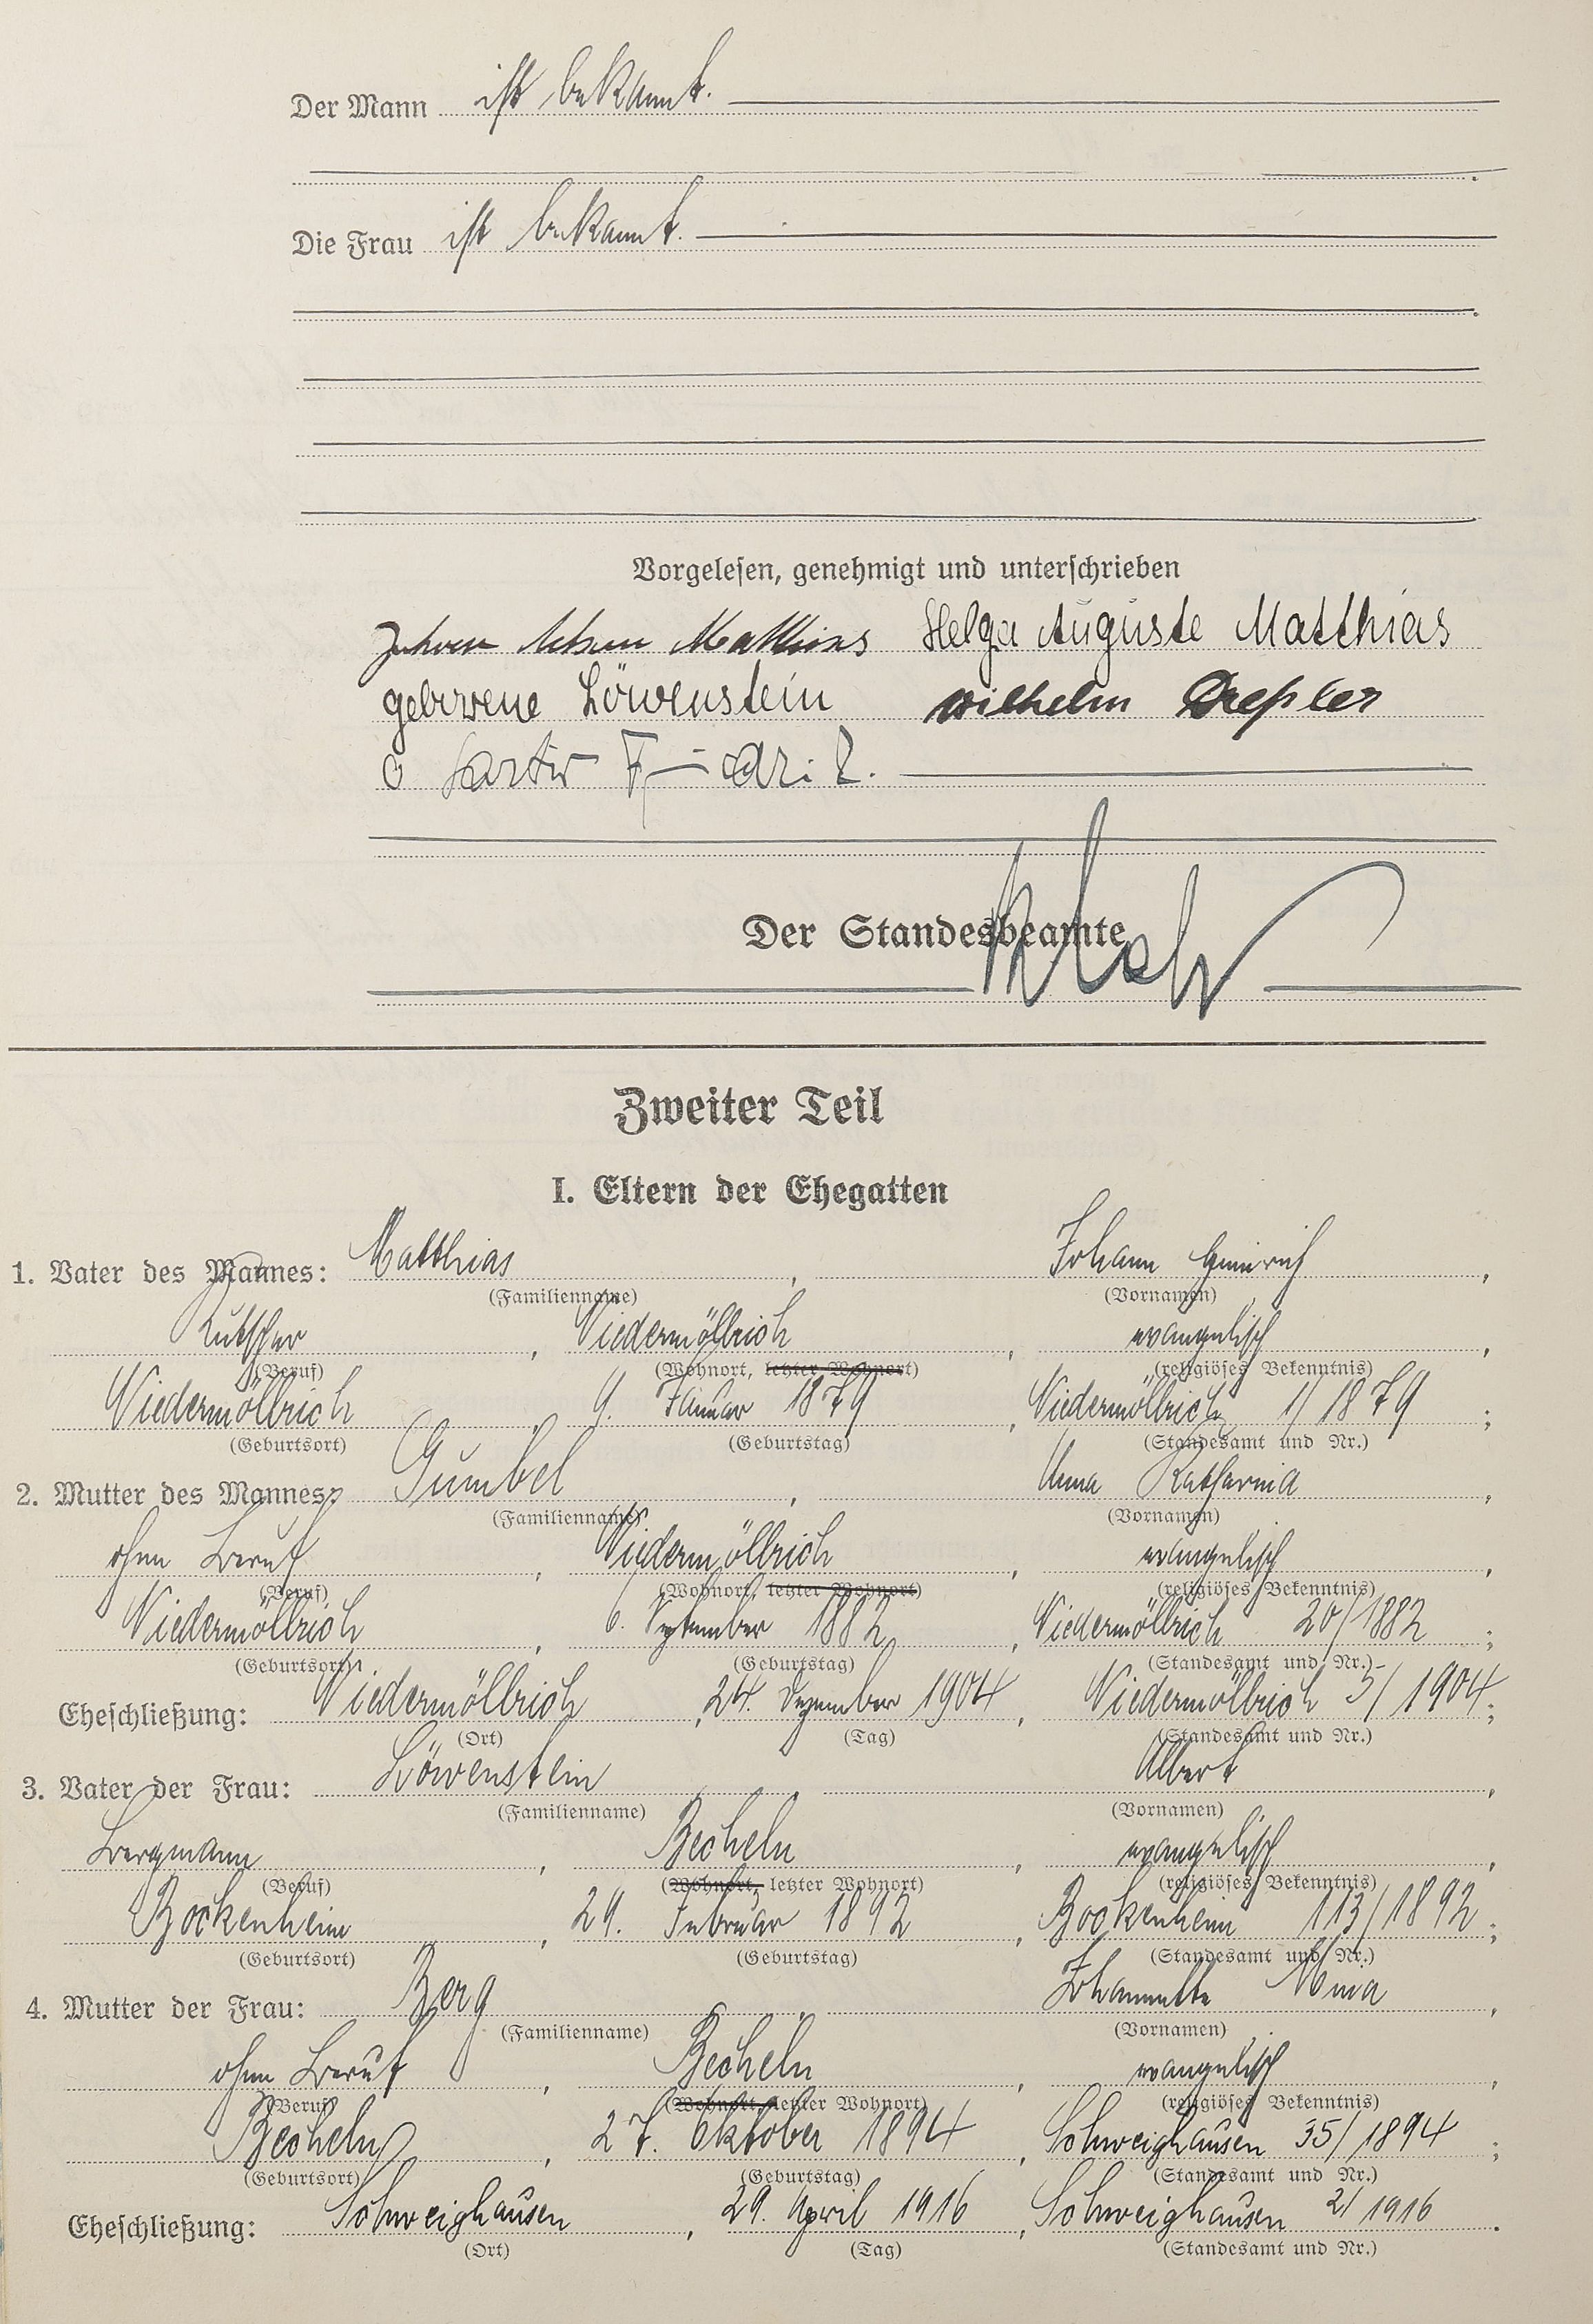 Der Mann ist bekannt.
Die Frau ist bekannt.
Vorgelesen, genehmigt und unterschrieben
Matthias Helga Auguste Matthias
geborene Löwenstein Wilhelm Dreßler
Der Standesbeamte
Zweiter Teil
I. Eltern der Ehegatten
1. Vater des Mannes: Matthias, Johann Heinrich,
(Familienname) (Vornamen)
Kutscher, Niedermöllrich, evangelisch,
(Beruf) (Wohnort, letzter Wohnort) (religiöses Bekenntnis)
Niedermöllrich, 9. Januar 1879, Niedermöllrich 1/1879;
(Geburtsort) (Geburtstag) (Standesamt und Nr.)
2. Mutter des Mannes: Gumbel, Anna Katharina,
(Familienname) (Vornamen)
ohne Beruf, Niedermöllrich, evangelisch,
(Beruf) (Wohnort, letzter Wohnort) (religiöses Bekenntnis)
Niedermöllrich, 6. September 1882, Niedermöllrich 20/1882;
(Geburtsort) (Geburtstag) (Standesamt und Nr.)
Eheschließung: Niedermöllrich, 24. Dezember 1904, Niedermöllrich 5/1904;
(Ort) (Tag) (Standesamt und Nr.)
3. Vater der Frau: Löwenstein, Albert,
(Familienname) (Vornamen)
Bergmann, Becheln, evangelisch,
(Beruf) (Wohnort, letzter Wohnort) (religiöses Bekenntnis)
Bockenheim, 29. Februar 1892, Bockenheim 113/1892;
(Geburtsort) (Geburtstag) (Standesamt und Nr.)
4. Mutter der Frau: Berg, Johannette
(Familienname) (Vornamen)
ohne Beruf, Becheln, evangelisch,
(Beruf) (Wohnort, letzter Wohnort) (religiöses Bekenntnis)
Becheln, 27. Oktober 1894, Schweighausen 35/1894;
(Geburtsort) (Geburtstag) (Standesamt und Nr.)
Eheschließung: Schweighausen, 29. April 1916, Schweighausen 2/1916.
(Ort) (Tag) (Standesamt und Nr.)